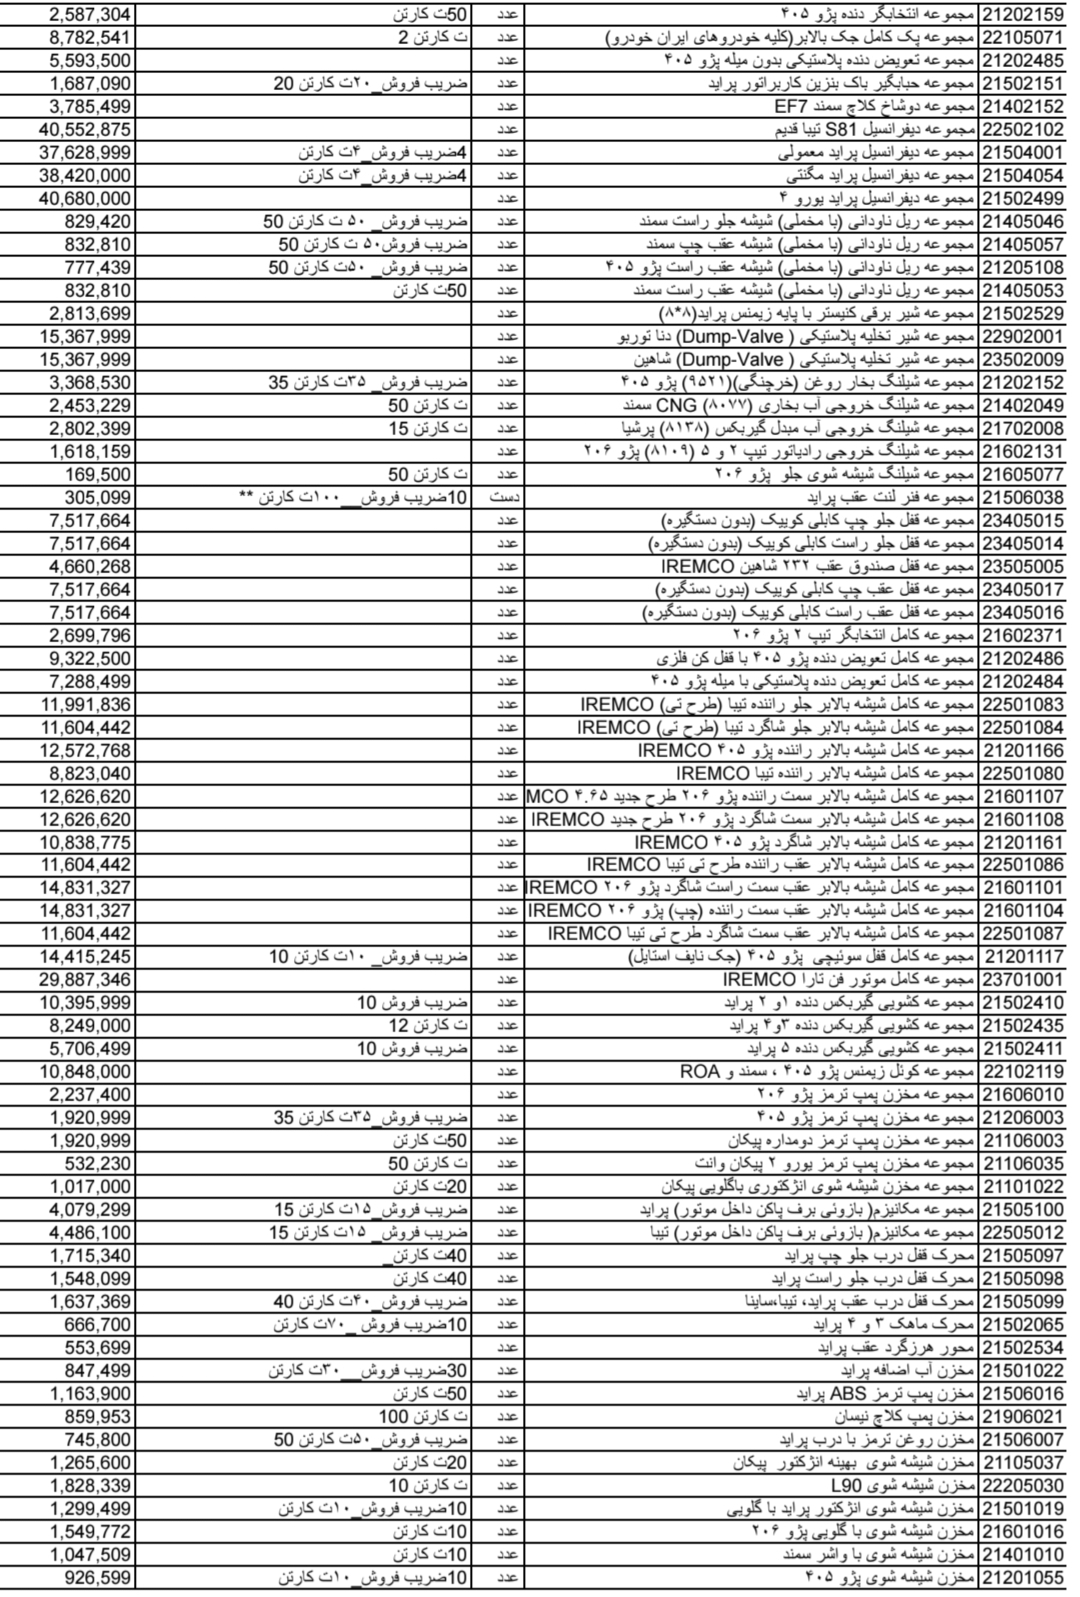 21202159 مجموعه انتخابگر دنده پژو ۴۰۵ عدد 50ت کارتن 2,587,304
22105071 مجموعه پک کامل جک بالابر(کلیه خودروهای ایران خودرو) عدد ت کارتن 2 8,782,541
21202485 مجموعه تعویض دنده پلاستیکی بدون میله پژو ۴۰۵ عدد 5,593,500
21502151 مجموعه حبابگیر باک بنزین کاربراتور پراید عدد ضریب فروش_۲۰ت کارتن 20 1,687,090
21402152 مجموعه دوشاخ کلاچ سمند EF7 عدد 3,785,499
22502102 مجموعه دیفرانسیل S81 تیبا قدیم عدد 40,552,875
21504001 مجموعه دیفرانسیل پراید معمولی عدد 4ضریب فروش_۴ت کارتن 37,628,999
21504054 مجموعه دیفرانسیل پراید مگنتی عدد 4ضریب فروش_۴ت کارتن 38,420,000
21502499 مجموعه دیفرانسیل پراید یورو ۴ عدد 40,680,000
21405046 مجموعه ریل ناودانی (با مخملی) شیشه جلو راست سمند عدد ضریب فروش_ ۵۰ ت کارتن 50 829,420
21405057 مجموعه ریل ناودانی (با مخملی) شیشه عقب چپ سمند عدد ضریب فروش۵۰ ت کارتن 50 832,810
21205108 مجموعه ریل ناودانی (با مخملی) شیشه عقب راست پژو ۴۰۵ عدد ضریب فروش_ ۵۰ت کارتن 50 777,439
21405053 مجموعه ریل ناودانی (با مخملی) شیشه عقب راست سمند عدد 50ت کارتن 832,810
21502529 مجموعه شیر برقی کنیستر با پایه زیمنس پراید(۸*۸) عدد 2,813,699
22902001 مجموعه شیر تخلیه پلاستیکی ( Dump-Valve) دنا توربو عدد 15,367,999
23502009 مجموعه شیر تخلیه پلاستیکی ( Dump-Valve) شاهین عدد 15,367,999
21202152 مجموعه شیلنگ بخار روغن (خرچنگی)(۹۵۲۱) پژو ۴۰۵ عدد ضریب فروش_ ۳۵ت کارتن 35 3,368,530
21402049 مجموعه شیلنگ خروجی آب بخاری (۸۰۷۷) CNG سمند عدد ت کارتن 50 2,453,229
21702008 مجموعه شیلنگ خروجی آب مبدل گیربکس (۸۱۳۸) پرشیا عدد ت کارتن 15 2,802,399
21602131 مجموعه شیلنگ خروجی رادیاتور تیپ ۲ و ۵ (۸۱۰۹) پژو ۲۰۶ عدد 1,618,159
21605077 مجموعه شیلنگ شیشه شوی جلو پژو ۲۰۶ عدد ت کارتن 50 169,500
21506038 مجموعه فنر لنت عقب پراید دست 10ضریب فروش__۱۰۰ت کارتن ** 305,099
23405015 مجموعه قفل جلو چپ کابلی کوییک (بدون دستگیره) عدد 7,517,664
23405014 مجموعه قفل جلو راست کابلی کوییک (بدون دستگیره) عدد 7,517,664
23505005 مجموعه قفل صندوق عقب ۲۳۲ شاهین IREMCO عدد 4,660,268
23405017 مجموعه قفل عقب چپ کابلی کوییک (بدون دستگیره) عدد 7,517,664
23405016 مجموعه قفل عقب راست کابلی کوییک (بدون دستگیره) عدد 7,517,664
21602371 مجموعه کامل انتخابگر تیپ ۲ پژو ۲۰۶ عدد 2,699,796
21202486 مجموعه کامل تعویض دنده پژو ۴۰۵ با قفل کن فلزی عدد 9,322,500
21202484 مجموعه کامل تعویض دنده پلاستیکی با میله پژو ۴۰۵ عدد 7,288,499
22501083 مجموعه کامل شیشه بالابر جلو راننده تیبا (طرح تی) IREMCO عدد 11,991,836
22501084 مجموعه کامل شیشه بالابر جلو شاگرد تیبا (طرح تی) IREMCO عدد 11,604,442
21201166 مجموعه کامل شیشه بالابر راننده پژو ۴۰۵ IREMCO عدد 12,572,768
22501080 مجموعه کامل شیشه بالابر راننده تیبا IREMCO عدد 8,823,040
21601107 مجموعه کامل شیشه بالابر سمت راننده پژو ۲۰۶ طرح جدید ۴.۶۵ MCO عدد 12,626,620
21601108 مجموعه کامل شیشه بالابر سمت شاگرد پژو ۲۰۶ طرح جدید IREMCO عدد 12,626,620
21201161 مجموعه کامل شیشه بالابر شاگرد پژو ۴۰۵ IREMCO عدد 10,838,775
22501086 مجموعه کامل شیشه بالابر عقب راننده طرح تی تیبا IREMCO عدد 11,604,442
21601101 مجموعه کامل شیشه بالابر عقب سمت راست شاگرد پژو ۲۰۶ IREMCO عدد 14,831,327
21601104 مجموعه کامل شیشه بالابر عقب سمت راننده (چپ) پژو ۲۰۶ IREMCO عدد 14,831,327
22501087 مجموعه کامل شیشه بالابر عقب سمت شاگرد طرح تی تیبا IREMCO عدد 11,604,442
21201117 مجموعه کامل قفل سوئیچی پژو ۴۰۵ (جک نایف استایل) عدد ضریب فروش_ ۱۰ت کارتن 10 14,415,245
23701001 مجموعه کامل موتور فن تارا IREMCO عدد 29,887,346
21502410 مجموعه کشویی گیربکس دنده ۱و ۲ پراید عدد ضریب فروش 10 10,395,999
21502435 مجموعه کشویی گیربکس دنده ۳و۴ پراید عدد ت کارتن 12 8,249,000
21502411 مجموعه کشویی گیربکس دنده ۵ پراید عدد ضریب فروش 10 5,706,499
22102119 مجموعه کوئل زیمنس پژو ۴۰۵ ، سمند و ROA عدد 10,848,000
21606010 مجموعه مخزن پمپ ترمز پژو ۲۰۶ عدد 2,237,400
21206003 مجموعه مخزن پمپ ترمز پژو ۴۰۵ عدد ضریب فروش_۳۵ت کارتن 35 1,920,999
21106003 مجموعه مخزن پمپ ترمز دومداره پیکان عدد 50ت کارتن 1,920,999
21106035 مجموعه مخزن پمپ ترمز یورو ۲ پیکان وانت عدد ت کارتن 50 532,230
21101022 مجموعه مخزن شیشه شوی انژکتوری باگلویی پیکان عدد 20ت کارتن 1,017,000
21505100 مجموعه مکانیزم( بازوئی برف پاکن داخل موتور) پراید عدد ضریب فروش_ ۱۵ت کارتن 15 4,079,299
22505012 مجموعه مکانیزم( بازوئی برف پاکن داخل موتور) تیبا عدد ضریب فروش_ ۱۵ت کارتن 15 4,486,100
21505097 محرک قفل درب جلو چپ پراید عدد 40ت کارتن_ 1,715,340
21505098 محرک قفل درب جلو راست پراید عدد 40ت کارتن 1,548,099
21505099 محرک قفل درب عقب پراید، تیبا،ساینا عدد ضریب فروش_۴۰ت کارتن 40 1,637,369
21502065 محرک ماهک ۳ و ۴ پراید عدد 10ضریب فروش _۷۰ت کارتن 666,700
21502534 محور هرزگرد عقب پراید عدد 553,699
21501022 مخزن آب اضافه پراید عدد 30ضریب فروش__۳۰ت کارتن 847,499
21506016 مخزن پمپ ترمز ABS پراید عدد 50ت کارتن 1,163,900
21906021 مخزن پمپ کلاچ نیسان عدد ت کارتن 100 859,953
21506007 مخزن روغن ترمز با درب پراید عدد ضریب فروش_۵۰ت کارتن 50 745,800
21105037 مخزن شیشه شوی بهینه انژکتور پیکان عدد 20ت کارتن 1,265,600
22205030 مخزن شیشه شوی L90 عدد ت کارتن 10 1,828,339
21501019 مخزن شیشه شوی انژکتور پراید با گلویی عدد 10ضریب فروش_۱۰ت کارتن 1,299,499
21601016 مخزن شیشه شوی با گلویی پژو ۲۰۶ عدد 10ت کارتن 1,549,772
21401010 مخزن شیشه شوی با واشر سمند عدد 10ت کارتن 1,047,509
21201055 مخزن شیشه شوی پژو ۴۰۵ عدد 10ضریب فروش_۱۰ت کارتن 926,599